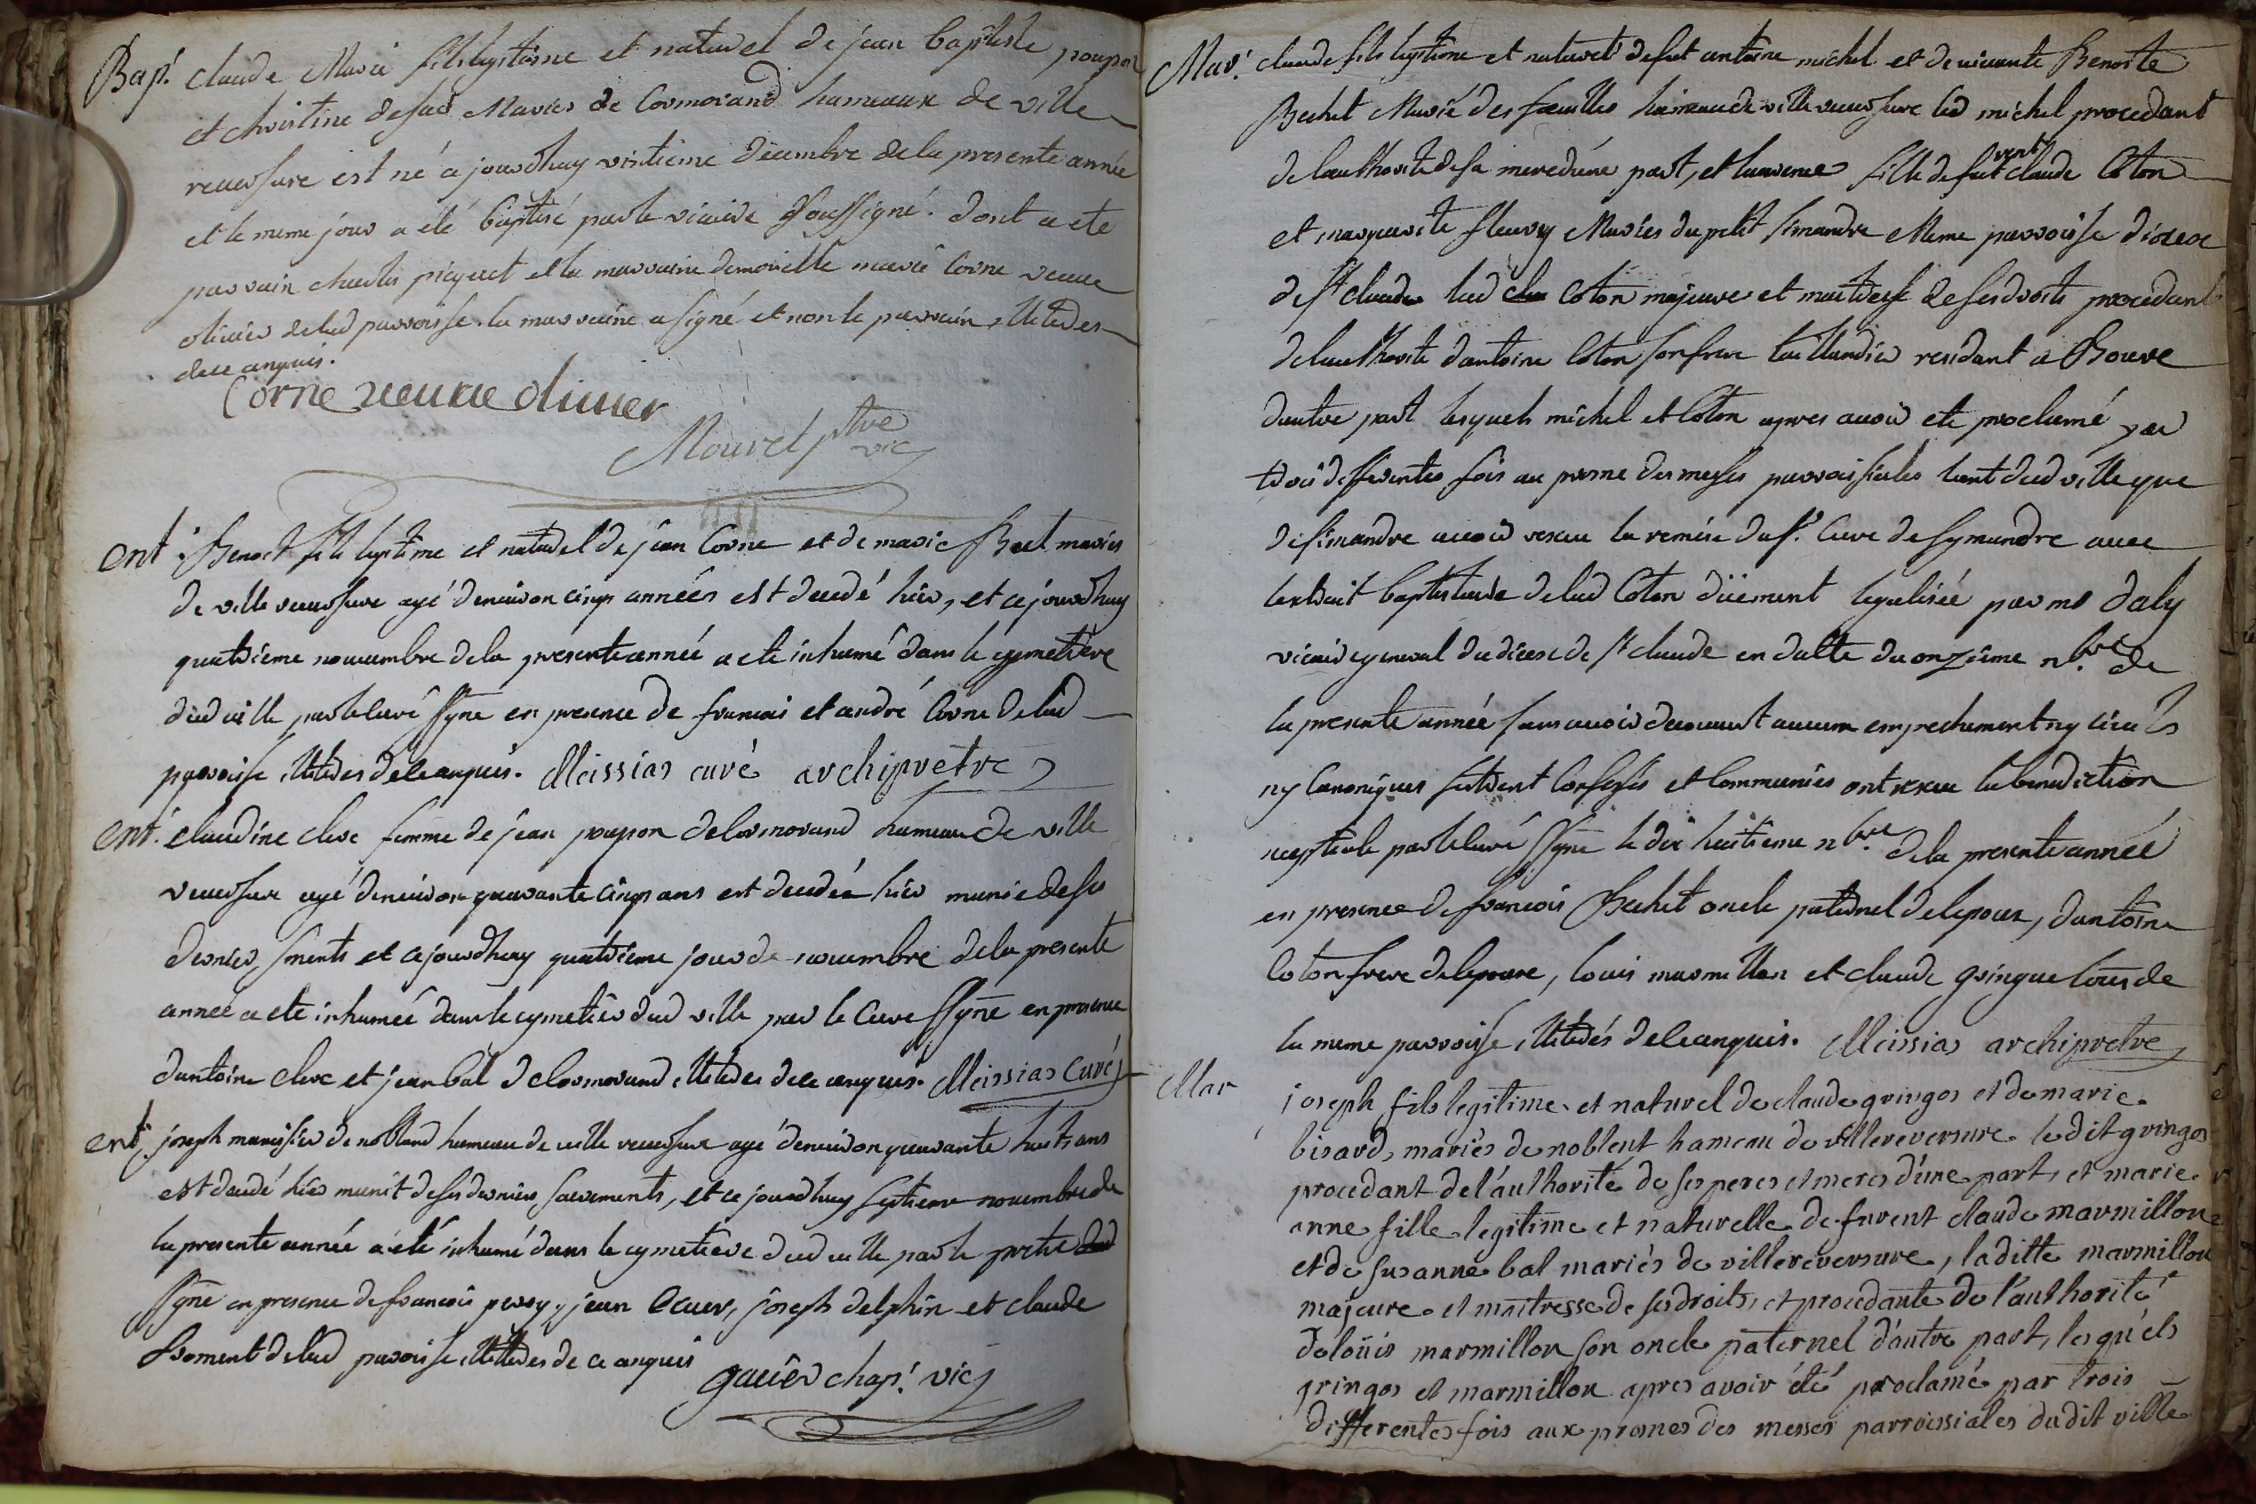 Bap.t claude Marie fils legitime et naturel de jean baptiste poupon
et christine defud Maries de Cormorand hameaux de ville
reversure est né ajourdhuy vintieme decembre de la presente année
et le meme jour a été baptisé par le vicaire soussigné. dont a ete
parrain charles piquet et la marraine demoiselle marie Corne veuve
olivier delad parroisse la marraine a signé et non le parrain illitéres
de ce enquis.
Corne veuve olivier
Mouret ptre vic
ent. Benoit fils legitime et naturel de jean Corne et de marie Bret maries
de ville reversure agé denviron cinqs années est decedé hier, et ce jourdhuy
quatrieme novembre de la presente année a ete inhumé dans le cymetière
dud ville par le curé ssgné en presence de francois et andré Corne delad
parroisse illiteres de ce enquis. Meissias curé archipretre
ent. claudine clerc femme de jean poupon de Cormorand hameau de ville
reversure agé denviron quarante cinqs ans est decedée hier munie de ses
dernier sments et cejourdhuy quatrieme jour de novembre de la presente
année a ete inhumée dans le cymetier dud ville par le Curé ssgné en presence
dantoine clerc et jean bal de Cormorand illiteres de ce enquis. Meissias Curé
ent. joseph marissier de nobland hameau de ville reversure agé denviron quarante huit ans
est decedé hier munit de ses derniers sacrements, et ce jourdhuy septieme novembre de
la presente année a été inhumé dans le cymetière dud ville par le pretre
ssgné en presence de francois perroy, jean Ecuer, joseph delphin et claude
froment delad parroisse illiteres de ce enquis
gauier chap.t vic
Mar.t claude fils legitime et naturel de fut antoine michel et de vivante Benoite
Bechet Marié des feuilles hameau de ville reversure led michel procedant
de lauthorite de sa mere dune part, et laurence fille de furent claude Coton
et marguerite fleury Maries du petit simandre Meme parroisse diocese
de st claude lad Coton majeure et maitresse de ses droits procedant
de lauthorite dantoine Coton son frere taillandier residant a Bouve
dautre part lesquels michel et Coton apres avoir ete proclamé par
trois differentes fois au prosne des messes parroissiales tant dud ville que
de simandre avoir rescu la remise du sr. Curé de symandre avec
lextrait baptistaire de lad Coton düement legalisée par mr daly
vicaire general du diocese de st claude en datte du onzieme n.bre de
la presente année sans avoir decouvert aucun empechement ny civils
ny Canoniques sestant Confessés et Communiés ont rescu la benediction
nuptiale par le Curé ssgné le dix huitieme n.bre de la presente année
en presence de francois Bechet oncle paternel de lepoux, dantoine
Coton frere de lepouse, louis marmillon et claude gringue tous de
la meme parroisse, illiterés de ce enquis. Meissias archipretre
Mar joseph fils legitime et naturel de claude gringos et de marie
bisard, mariés de noblent hameau de villereversure ledit gringos
procedant de l'authorité de ses peres et meres d'une part, et marie
anne fille legitime et naturelle de furent claude marmillon
et de susanne bal mariés de villereversure, laditte marmillon
majeure et maitresse de ses droits, et procedante de l'authorité
de loüis marmillon son oncle paternel d'autre part, lesquels
gringos et marmillon apres avoir été proclamé par trois
differentes fois aux prosnes des messes parroissiales dudit ville